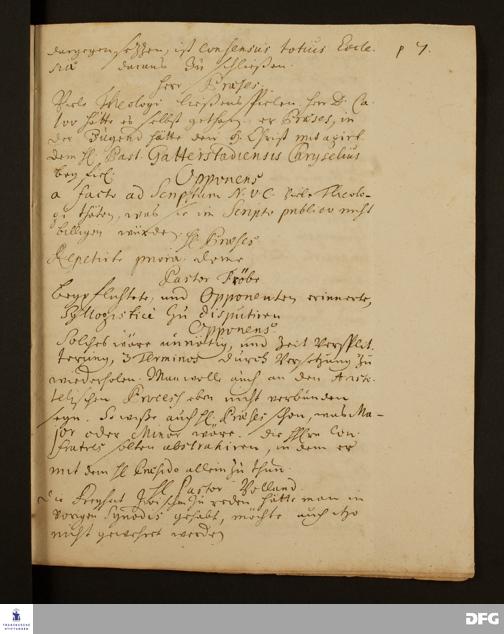 dargegen setzen, ist consensus totius Eccle- p 7.
siæ daraus zu schließen.
Herr Præses.
Viele Theologi ließens spielen. Herr D. Ca-
lov hätte es selbst gethan. er Præses, in
der Jugend hätte den H. Christ mit agirt
dem H. Past. Gatterstadiensis Caryselius
beyfiel.
Opponens
a facto ad Scriptum N. V. C. viele Theolo-
gi thäten, was sie im Scripto publico nicht
billigen würden.
H. Præses
Repetirte priora
Pastor Fröbe
beypflichtete, und Opponenten erinnerte,
Syllogisticè zu disputiren
Opponens
Solches wäre unnöthig, und Zeit Versplit-
terung, 3 Terminos durch Versetzung zu
wiederholen. Man wolle auch an den Aristo-
telischen Process eben nicht verbunden
seyn. So wiße auch H. Præses schon, was Ma-
jor oder Minor wäre. die HErrn Con-
fratres solten abstrahiren, in dem er
mit dem H. Præsido allein zu thun.
H. Pastor Volland.
Die Freyheit zwischen zu reden hätte man in
vorgen Synodis gehabt, möchte auch itzo
nicht gewehret werden
DFG